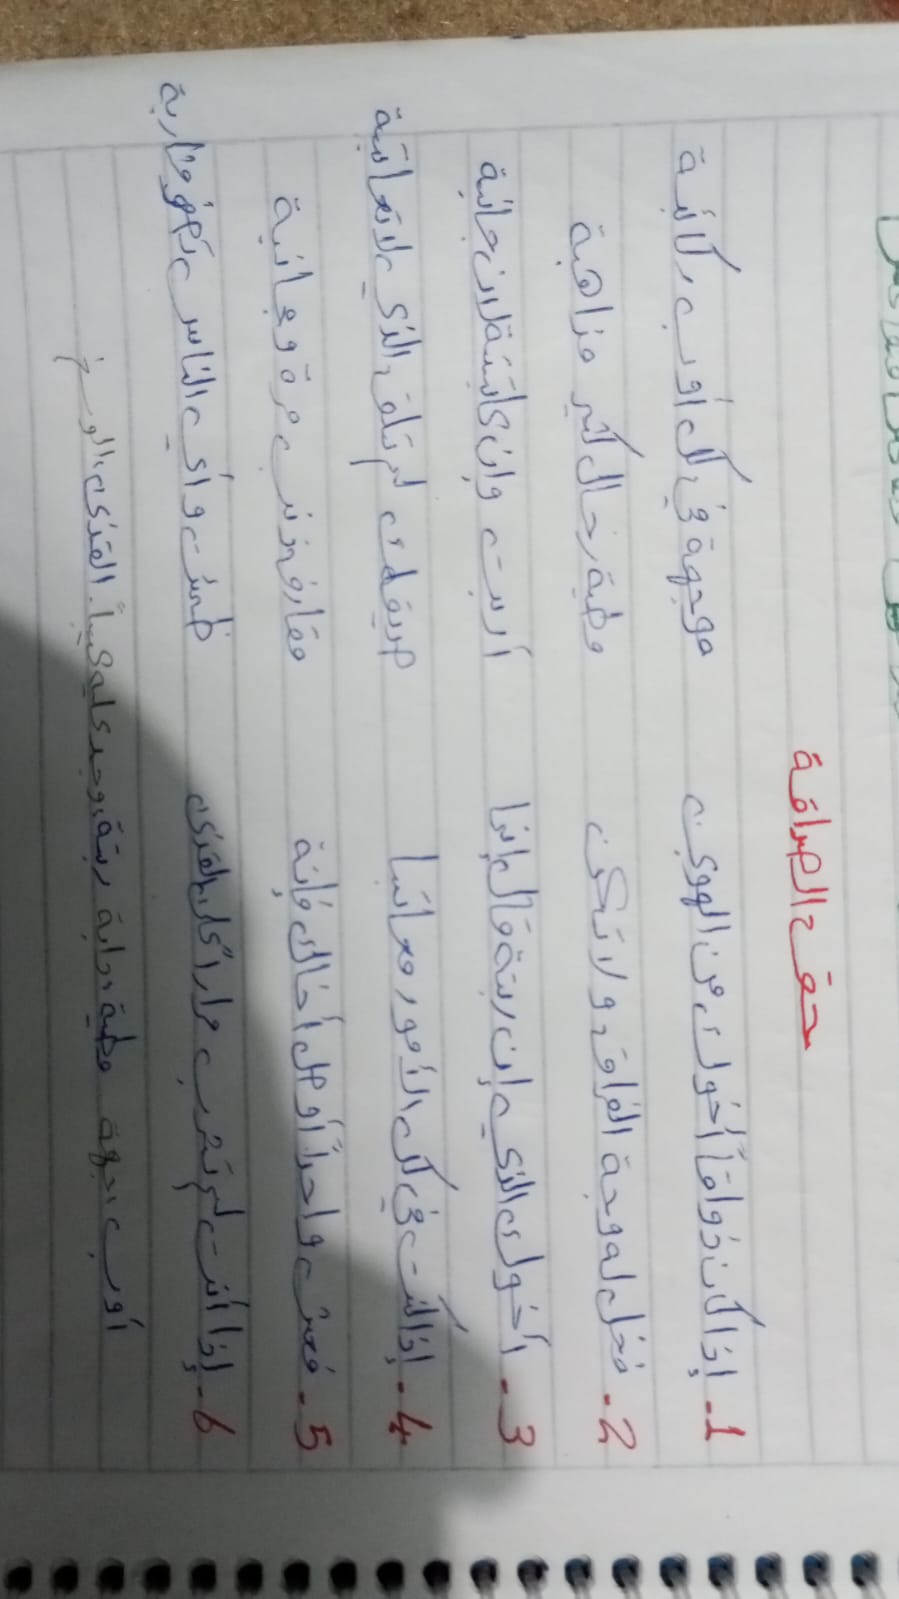 حق الصداقة
1- إذا كان ذواقاً أخوك من الهوى موجهة في كل أوب ركائبة
2- فخل له وجة الفراق ولا تكن مطية رحال كثير مذاهبة
3- أخوك الذي إن ربتة قال إنما أربت وإن عاتبتة لان جانبة
4- إذا كنت في كل الأمور معاتبا صديقك لم تلق الذي لا تعاتبة
5- فعش واحداً أو صل أخاك فإنة مقارف ذنب مرة ومجانبة
6- إذا أنت لم تشرب مراراً على القذى ظمئت وأي الناس تصفو مشاربة
أوب: جهة مطية: دابة ربتة: وجد عليه عيباً. القذى: الوسخ